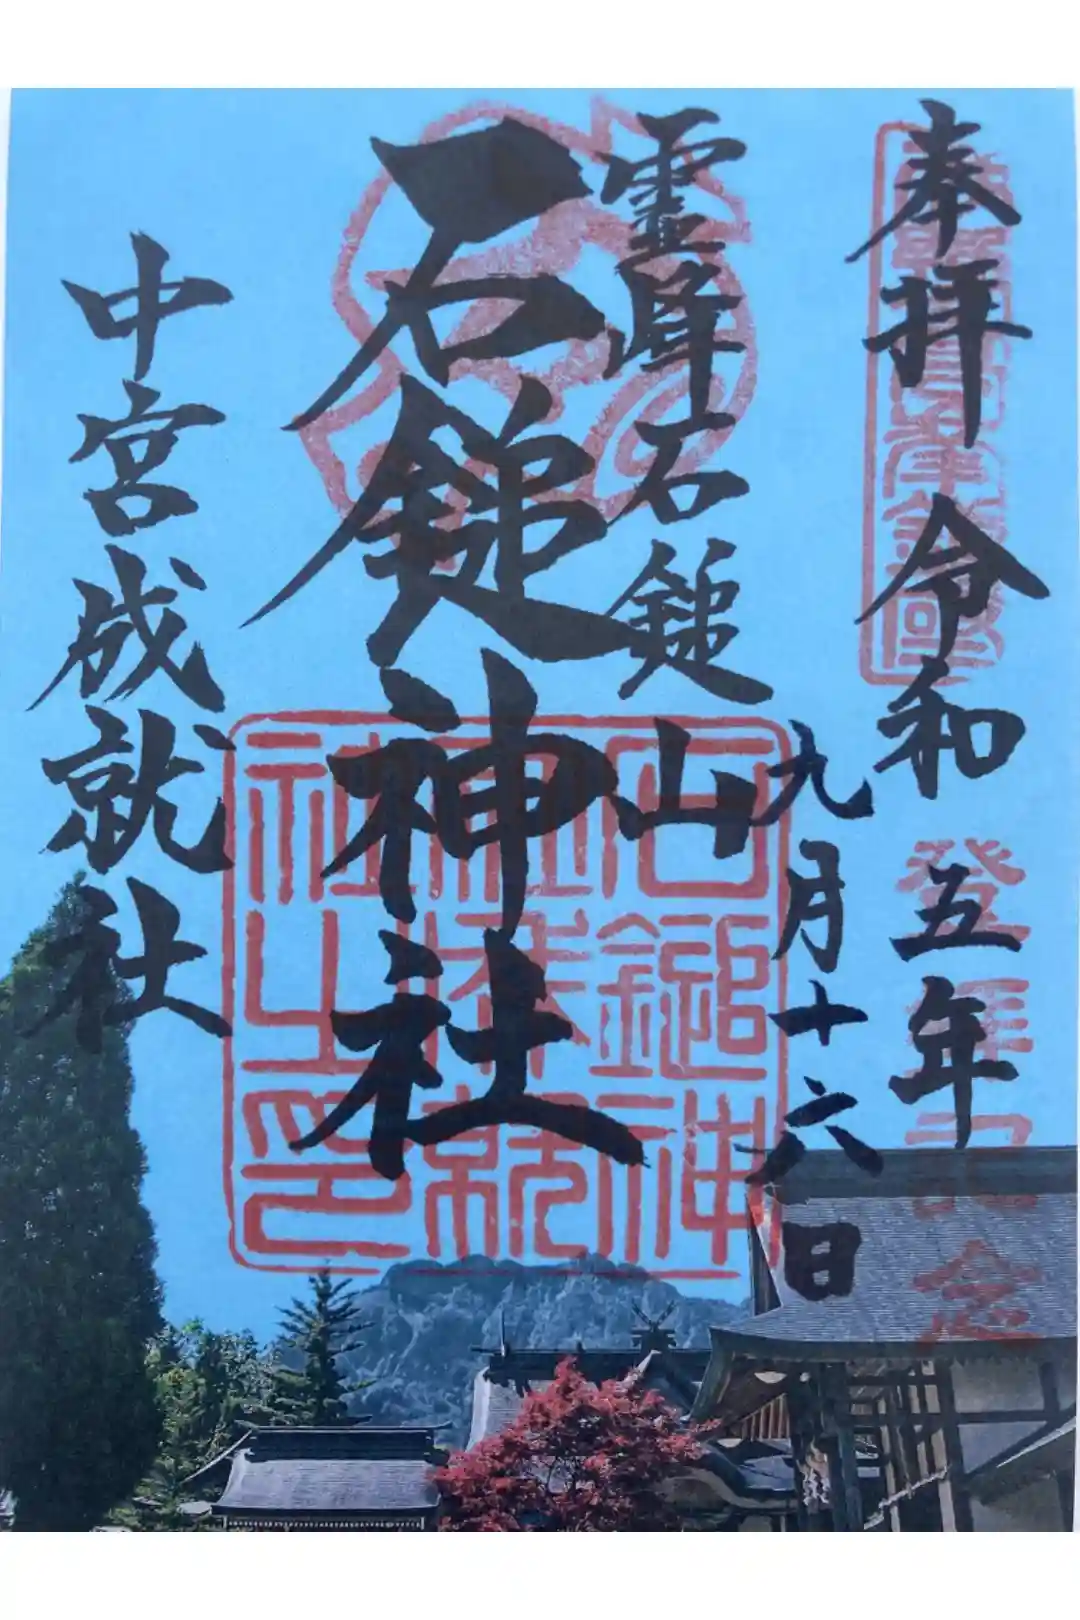 奉拝 令和五年
九月十六日
霊峰石鎚山
石鎚神社
中宮成就社
登拝記念
石鎚神
社成就
社之印